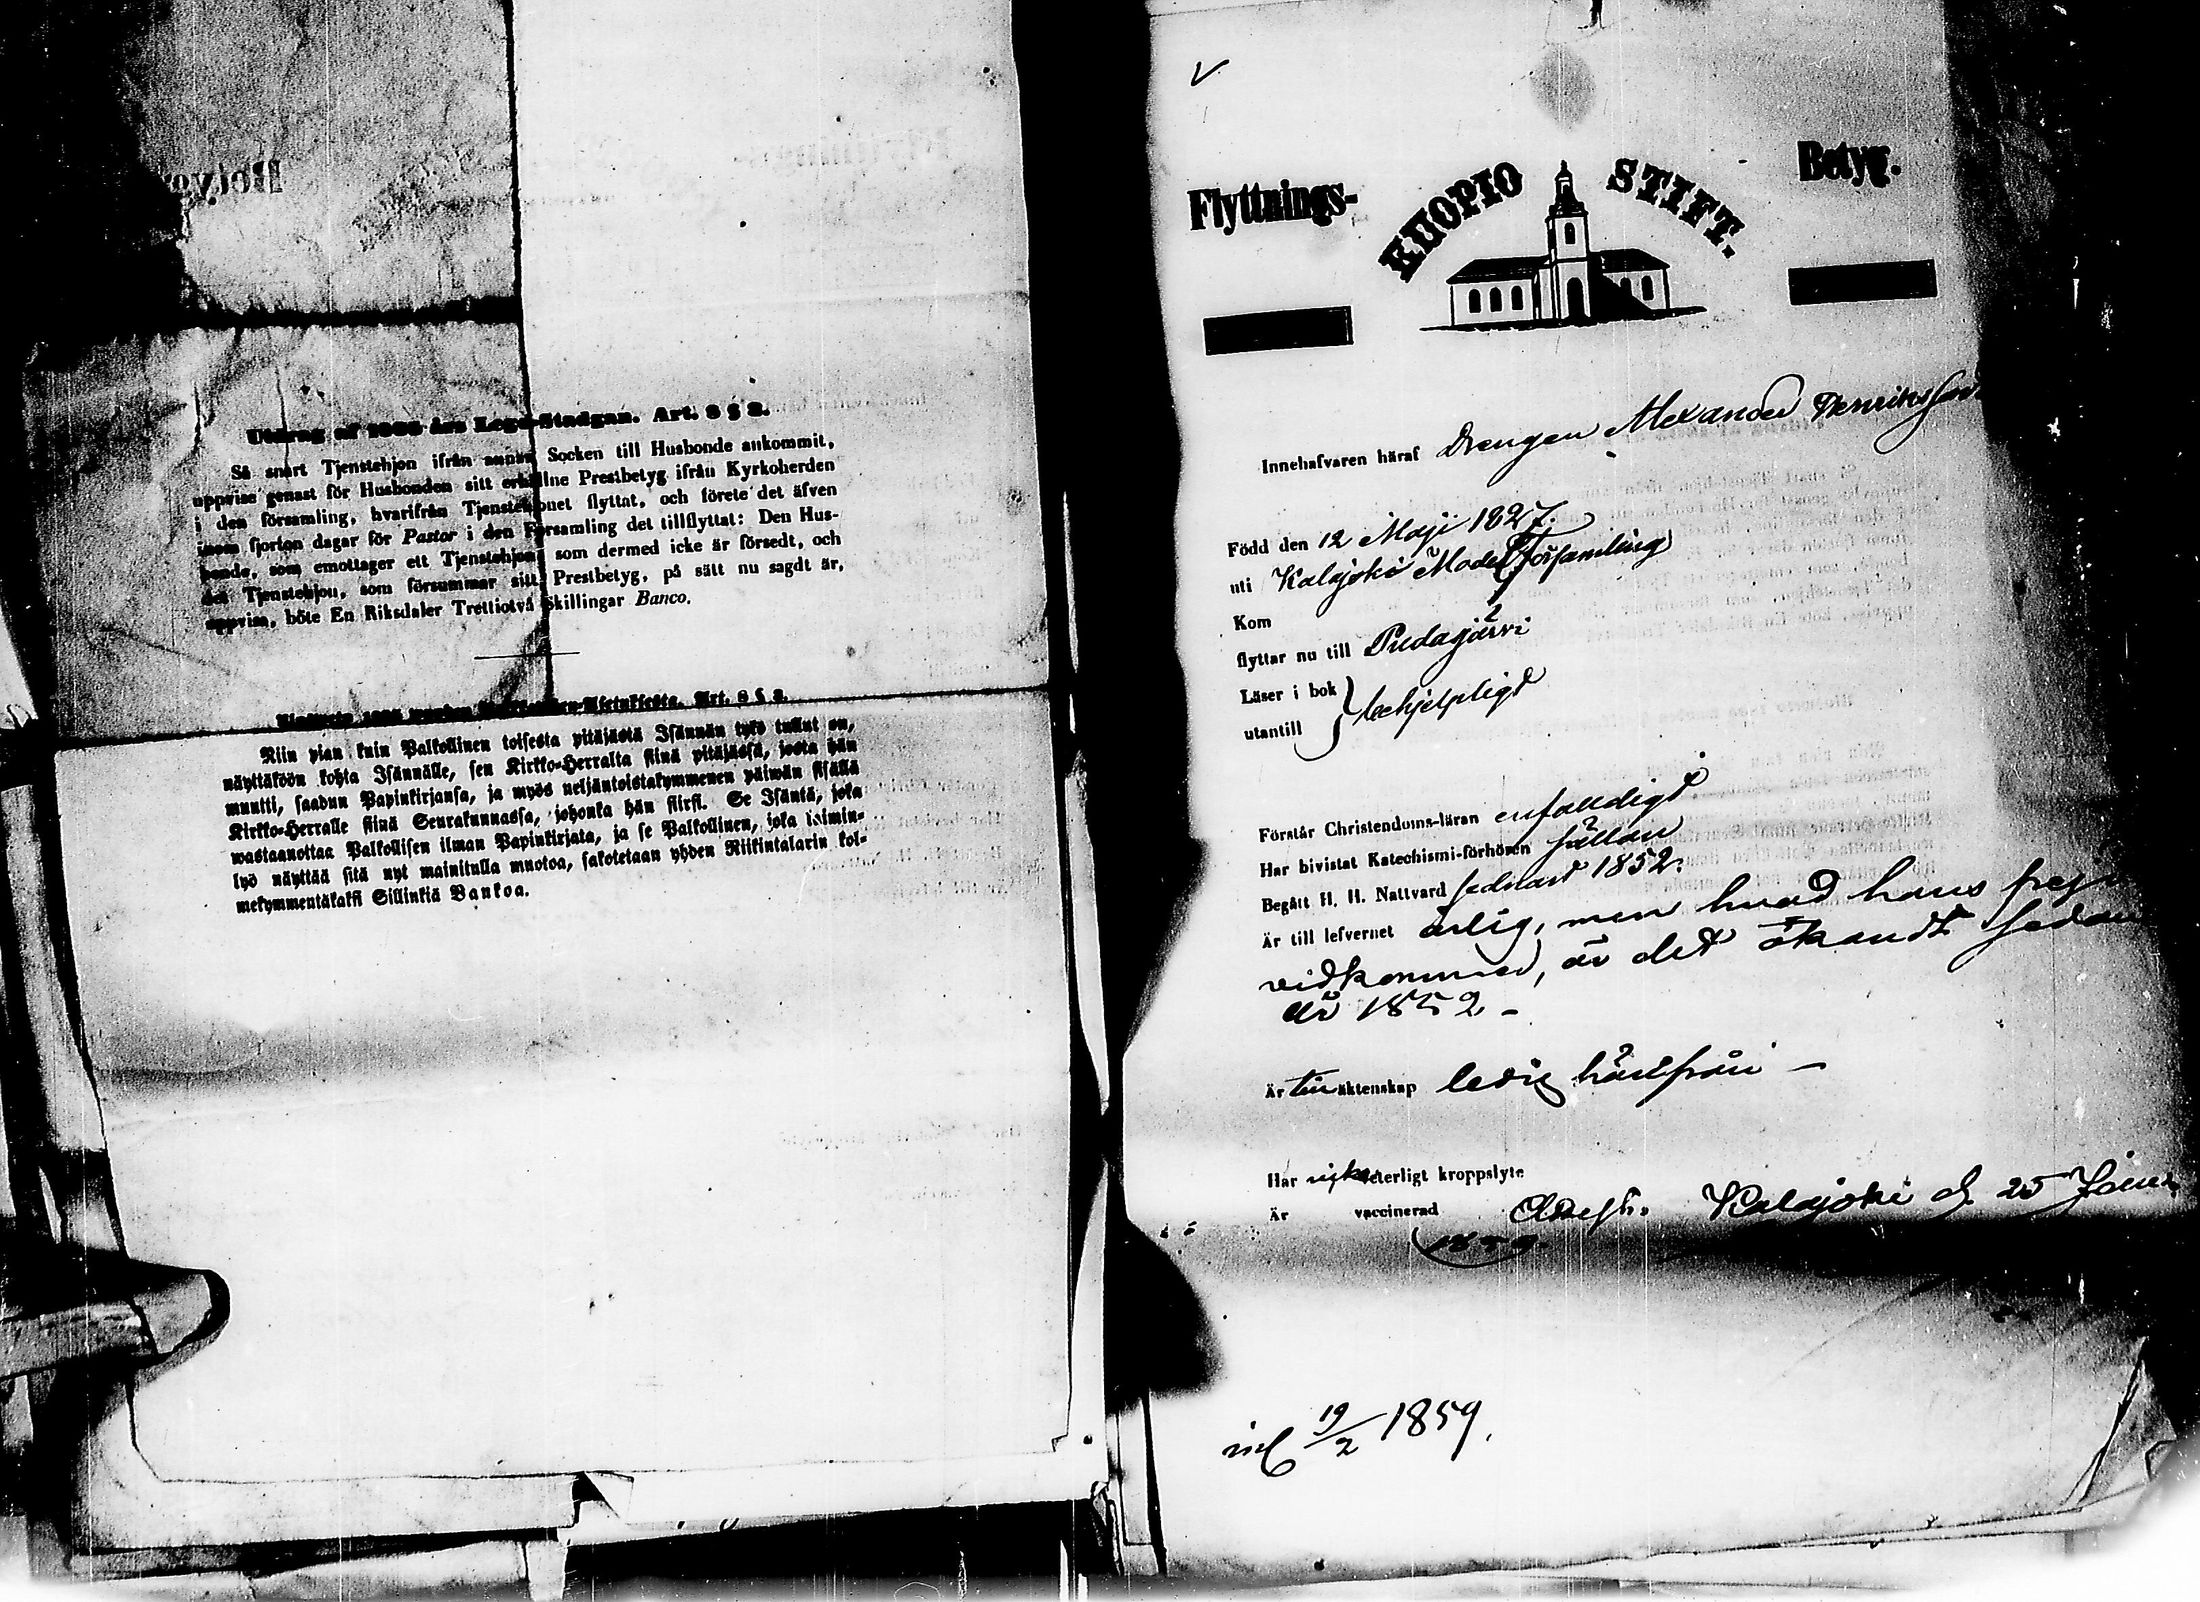 Utdrag af 1805 års Lego-Stadgan. Art. 8 § 2.
Så snart Tjenstehjon ifrån annan Socken till Husbonde ankommit,
uppvise genast för Husbonden sitt erhållne Prestbetyg ifrån Kyrkoherden
i den församling, hvarifrån Tjenstehjonet flyttat, och förete det äfven
inom fjorton dagar för Pastor i den Församling det tillflyttat: Den Hus-
bonde, som emottager ett Tjenstehjon, som dermed icke är försedt, och
det Tjenstehjon, som försummar sitt Prestbetyg, på sätt nu sagdt är,
uppvisa, böte En Riksdaler Trettiotvå Skillingar Banco.
Art. 8 § 2.
Niin pian kuin Palkollinen toisesta pitäjästä Isännän tykö tullut on,
näyttäköön kohta Isännälle, sen Kirkko-Herralta siinä pitäjässä, josta hän
muutti, saadun Papinkirjansa, ja myös neljäntoistakymmenen päiwän sisällä
Kirkko-Herralle siinä Seurakunnassa, johonka hän siirsi. Se Isäntä, joka
wastaanottaa Palkollisen ilman Papinkirjata, ja se Palkollinen, joka laimin-
lyö näyttää sitä nyt mainitulla muotoa, sakotetaan yhden Riikintalarin kol-
mekymmentäkaksi Sillinkiä Bankoa.
V
Flyttnings- KUOPIO STIFT. Betyg.
Innehafvaren häraf Drengen Alexander Henriksson
Född den 12 Maji 1827.
uti Kalajoki Moder Församling
Kom
flyttar nu till Pudasjärvi
Läser i bok } behjelpligt
utantill
Förstår Christendoms-läran enfaldigt
Har bivistat Katechismi-förhören sällan
Begått H. H. Nattvard sednast 1852.
Är till lefvernet ärlig, men hvad hans frejd
vidkommer, är det okändt sedan
år 1852 –
Är till äktenskap ledig härifrån –
Har icke veterligt kroppslyte
Är vaccinerad Kalajoki d. 25
1859.
inl 19/2 1859.